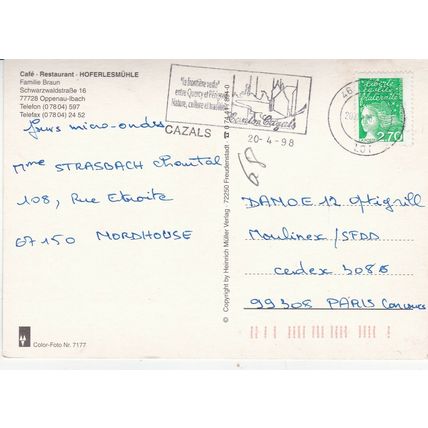 Café · Restaurant · HOFERLESMÜHLE
Familie Braun
Schwarzwaldstraße 16
77728 Oppenau-Ibach
Telefon (07804) 597
Telefax (07804) 24 52
fours micro-ondes
Mme STRASBACH Chantal
108, Rue Etroite
67150 NORDHOUSE
Color-Foto Nr. 7177
© Copyright by Heinrich Müller Verlag · 72250 Freudenstadt
"la frontière verte"
entre Quercy et Périgord
Nature, culture et traditions
Canton Cazals
CAZALS
20-4-98
46
LOT
2,70
68
DAMOE 12
Moulinex/SFDD
cedex 3086
99308 PARIS Concours